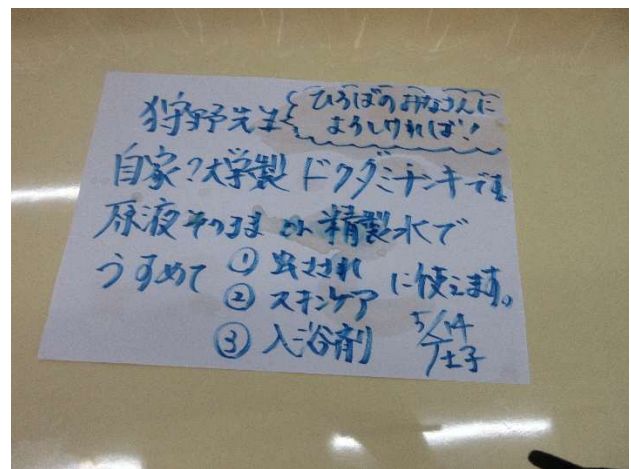 狩野先生
ひろばのみなさんに
よろしければ!
自家?大学製 ドクダミチンキです
原液そのまま or 精製水で
うすめて ① 虫さされ
② スキンケア
③ 入浴剤
に使えます。
5/14